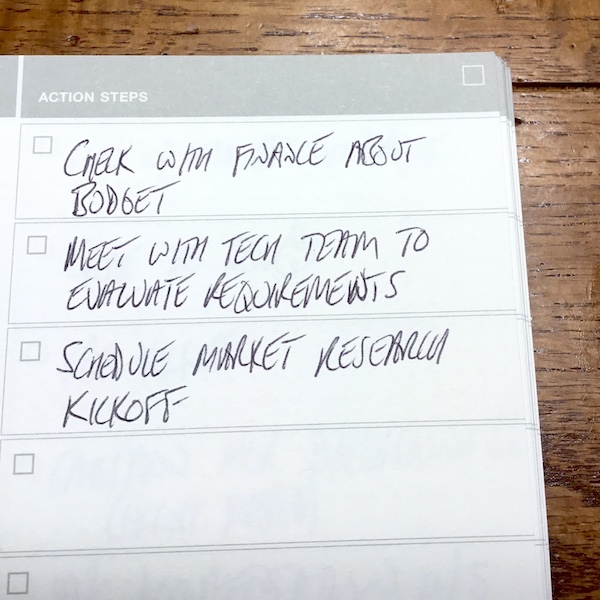 ACTION STEPS
CHECK WITH FINANCE ABOUT
BUDGET
MEET WITH TECH TEAM TO
EVALUATE REQUIREMENTS
SCHEDULE MARKET RESEARCH
KICKOFF